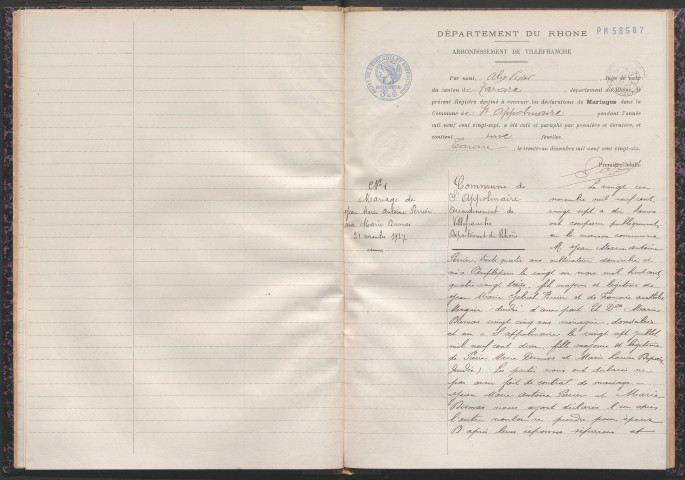 DÉPARTEMENT DU RHONE
PM58587
ARRONDISSEMENT DE VILLEFRANCHE
Par nous, Juge de paix
du canton de Tarare, département du Rhône, le
présent Registre destiné à recevoir les déclarations de Mariages dans la
Commune de St Appolinaire pendant l'année
mil neuf cent vingt-sept, a été coté et paraphé par première et dernière, et
contient feuilles.
Tarare, le trente-un décembre mil neuf cent vingt-six.
Premier feuillet
No 1
Mariage de
Jean Marie Antoine Perrin
avec Marie Dumas
21 novembre 1927
Commune de
St Appolinaire
Arrondissement de
Villefranche
Département du Rhône
Le vingt un
novembre mil neuf cent
vingt sept à dix heures
ont comparu publiquement
en la maison commune
M. Jean Marie Antoine
Perrin, trente quatre ans cultivateur domicilié et
né à le vingt un mars mil huit cent
quatre vingt treize, fils majeur et légitime de
Jean Marie Perrin et de
d'une part Et Dlle Marie
Dumas vingt cinq ans ménagère, domiciliée
et née à St Appolinaire le vingt sept juillet
mil neuf cent deux, fille majeure et légitime
de Pierre Marie Dumas et Marie Louise
Les parties nous ont déclaré ne
pas avoir fait de contrat de mariage
Jean Marie Antoine Perrin et Marie
Dumas nous ayant déclaré l'un après
l'autre vouloir se prendre pour époux
D'après leurs réponses séparées et